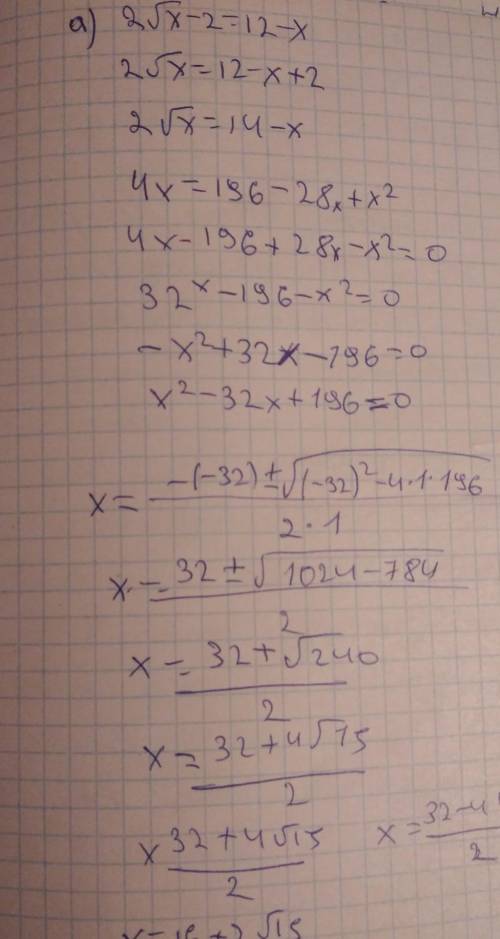 а) 2√x-2=12-x
2√x=12-x+2
2√x=14-x
4x=196-28x+x²
4x-196+28x-x²=0
32x-196-x²=0
-x²+32x-196=0
x²-32x+196=0
x=(-(-32)±√((-32)²-4·1·196))/(2·1)
x=(32±√(1024-784))/2
x=(32+√240)/2
x=(32+4√15)/2
x (32+4√15)/2
x=(32-4)/2
x=16+2√15